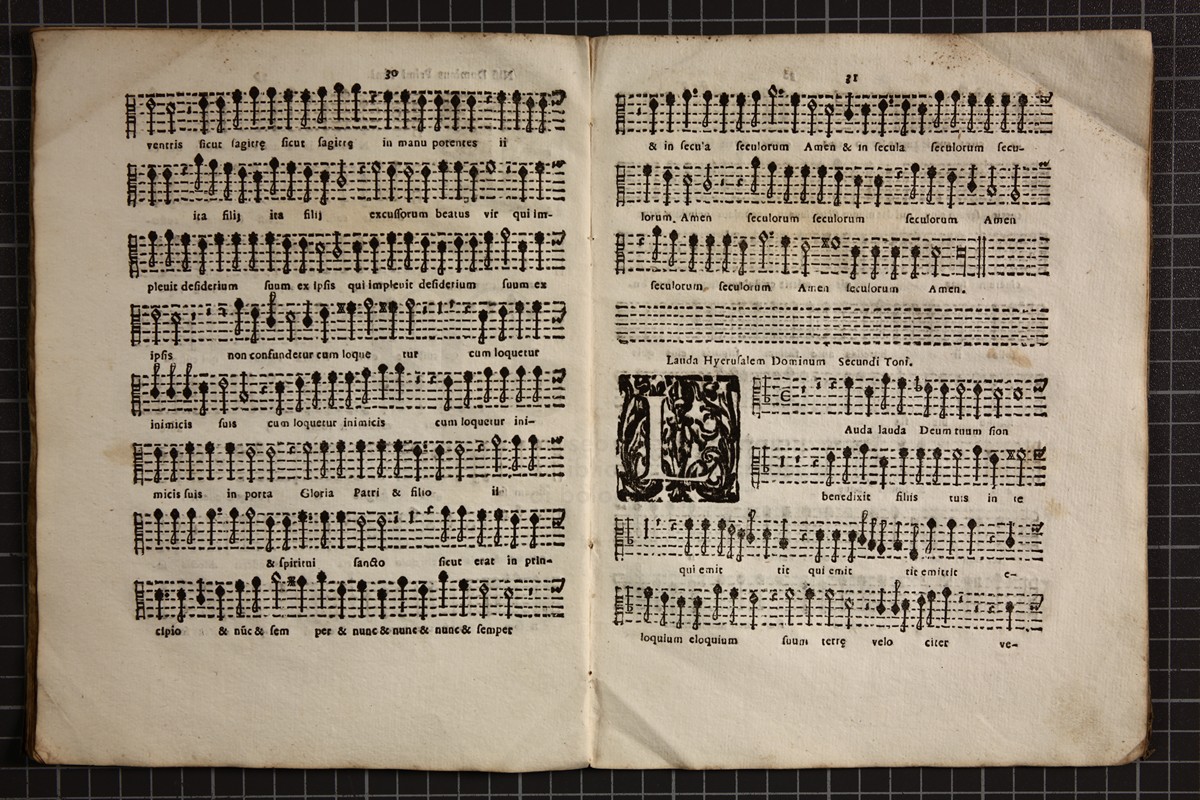 30
ventris sicut sagittę sicut sagittę in manu potentes ii
ita filij ita filij excussorum beatus vir qui im-
pleuit desiderium suum ex ipsis qui impleuit desiderium suum ex
ipsis non confundetur cum loque tur cum loquetur
inimicis suis cum loquetur inimicis cum loquetur ini-
micis suis in porta Gloria Patri & filio ii
& spiritui sancto sicut erat in prin-
cipio & nũc & sem per & nunc & nunc & nunc & semper
31
& in secula seculorum Amen & in secula seculorum secu-
lorum. Amen seculorum seculorum seculorum Amen
seculorum seculorum Amen seculorum Amen.
Lauda Hyerusalem Dominum Secundi Toni.
L
Auda lauda Deum tuum sion
benedixit filiis tuis in te
qui emit tit qui emit tit emittit e-
loquium eloquium suum terrę velo citer ve-